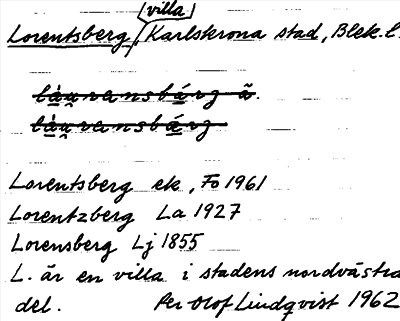 villa
Lorentsberg, Karlskrona stad, Blek. l.
Lorentsberg ek, Fo 1961
Lorentzberg La 1927
Lorensberg Lj 1855
L. är en villa i stadens nordvästra
del. Per Olof Lindqvist 1962